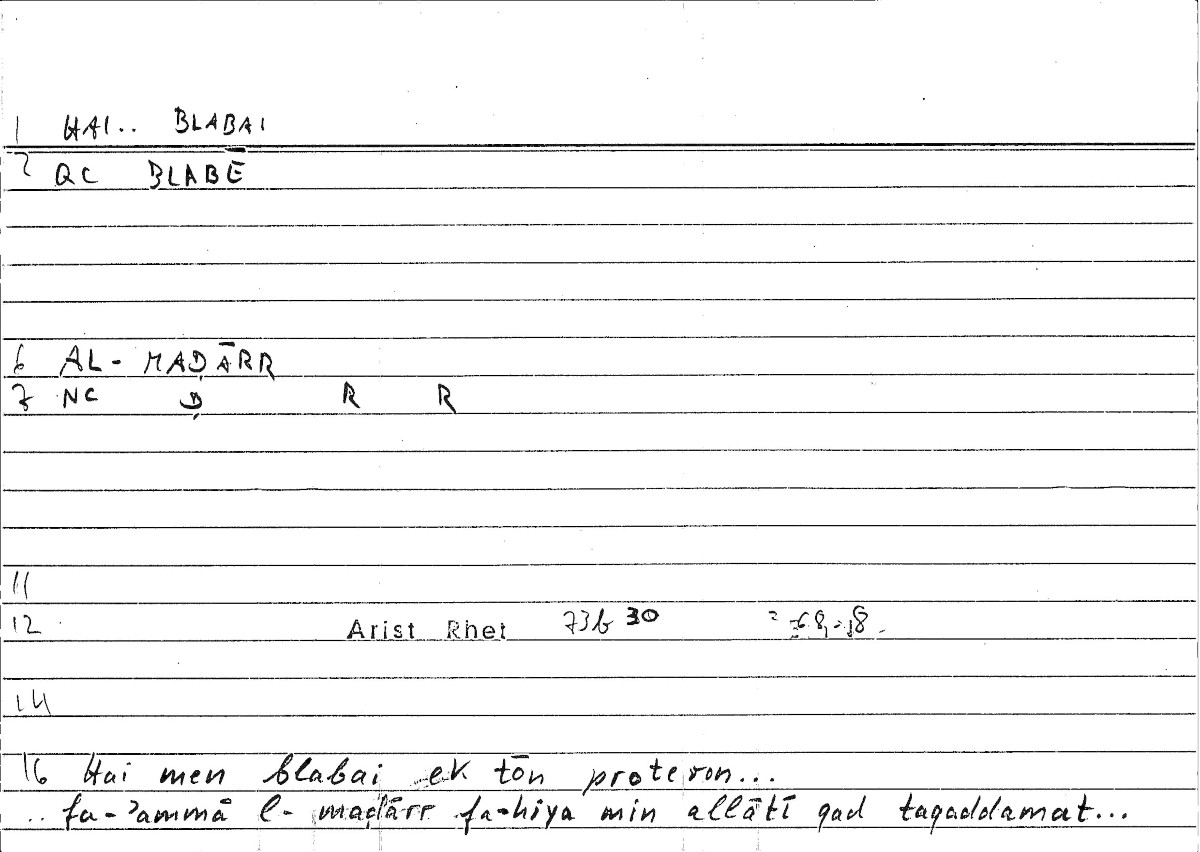 1 HAI.. BLABAI
2 QC BLABĒ
6 AL- MAḌĀRR
7 NC Ḍ R R
11
12 Arist Rhet 73b 30
14
16 Hai men blabai ek tōn proteron...
.. fa-ʾammā l- maḍārr fa-hiya min allātī qad taqaddamat...